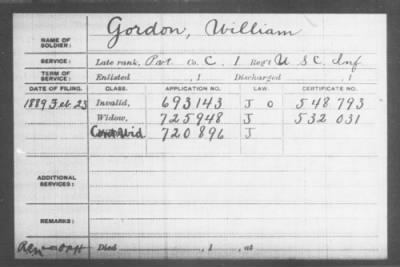 NAME OF SOLDIER: Gordon, William
SERVICE: Late rank, Pvt. Co. C, 1 Reg't U S C. Inf
TERM OF SERVICE: Enlisted , 1 Discharged , 1
DATE OF FILING. CLASS. APPLICATION NO. LAW. CERTIFICATE NO.
1889 Feb 23 Invalid, 693143 J O 548793
Widow, 725948 J 532 031
720896 J
ADDITIONAL SERVICES:
REMARKS:
Died , 1 , at